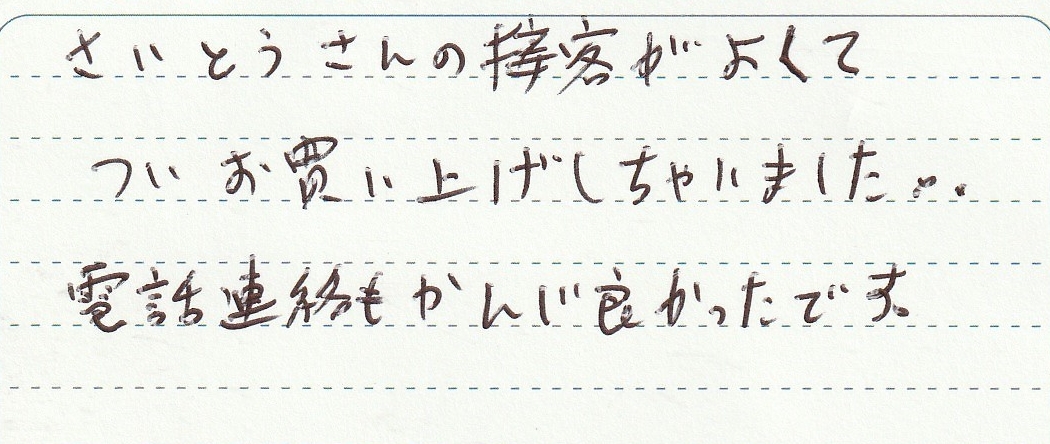 さいとうさんの接客がよくて
ついお買い上げしちゃいました。。
電話連絡もかんじ良かったです。